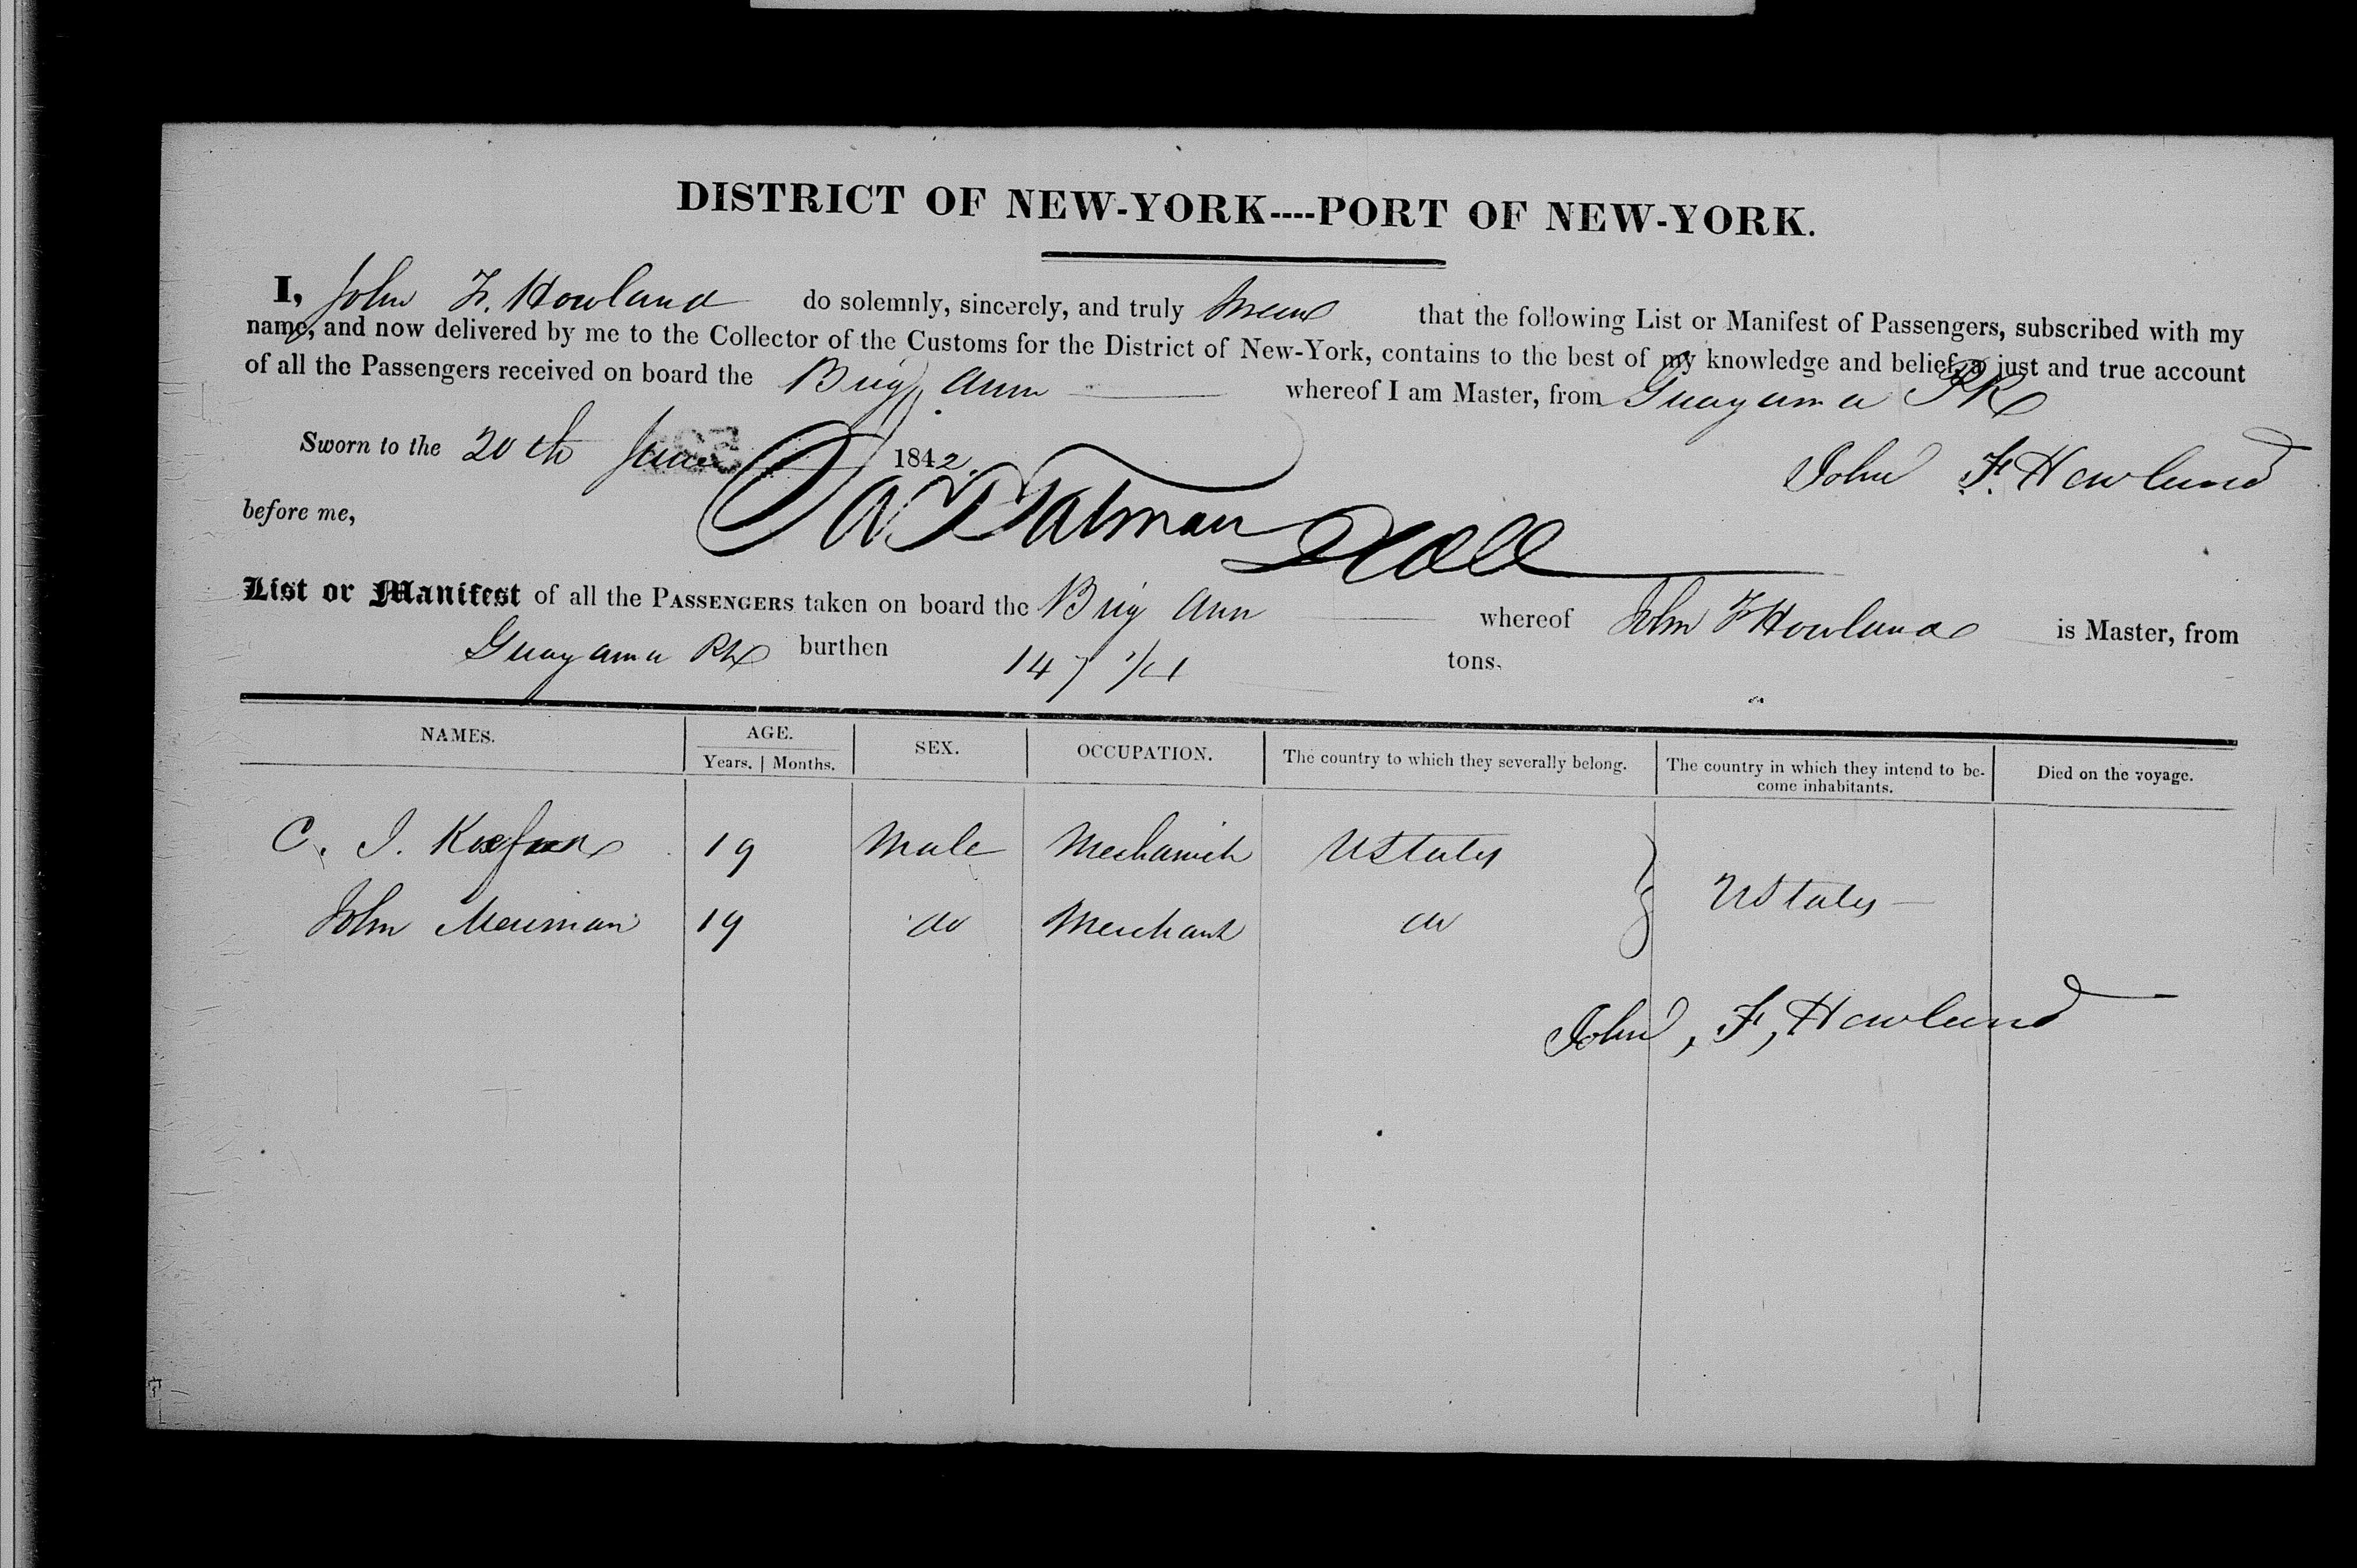 DISTRICT OF NEW-YORK----PORT OF NEW-YORK.
I, John F. Howland do solemnly, sincerely, and truly Swear that the following List or Manifest of Passengers, subscribed with my
name, and now delivered by me to the Collector of the Customs for the District of New-York, contains to the best of my knowledge and belief, a just and true account
of all the Passengers received on board the Brig Ann whereof I am Master, from Guayama PR
Sworn to the 20th June 1842.
John F. Howland
before me,
List or Manifest of all the PASSENGERS taken on board the Brig Ann whereof John F Howland is Master, from
Guayama PR burthen 147 tons.
NAMES. AGE. SEX. OCCUPATION. The country to which they severally belong. The country in which they intend to be-
come inhabitants. Died on the voyage.
Years. Months.
C. I. 19 Male Mechanick UStates
UStates
John Merriman 19 do Merchant do
John, F, Howland